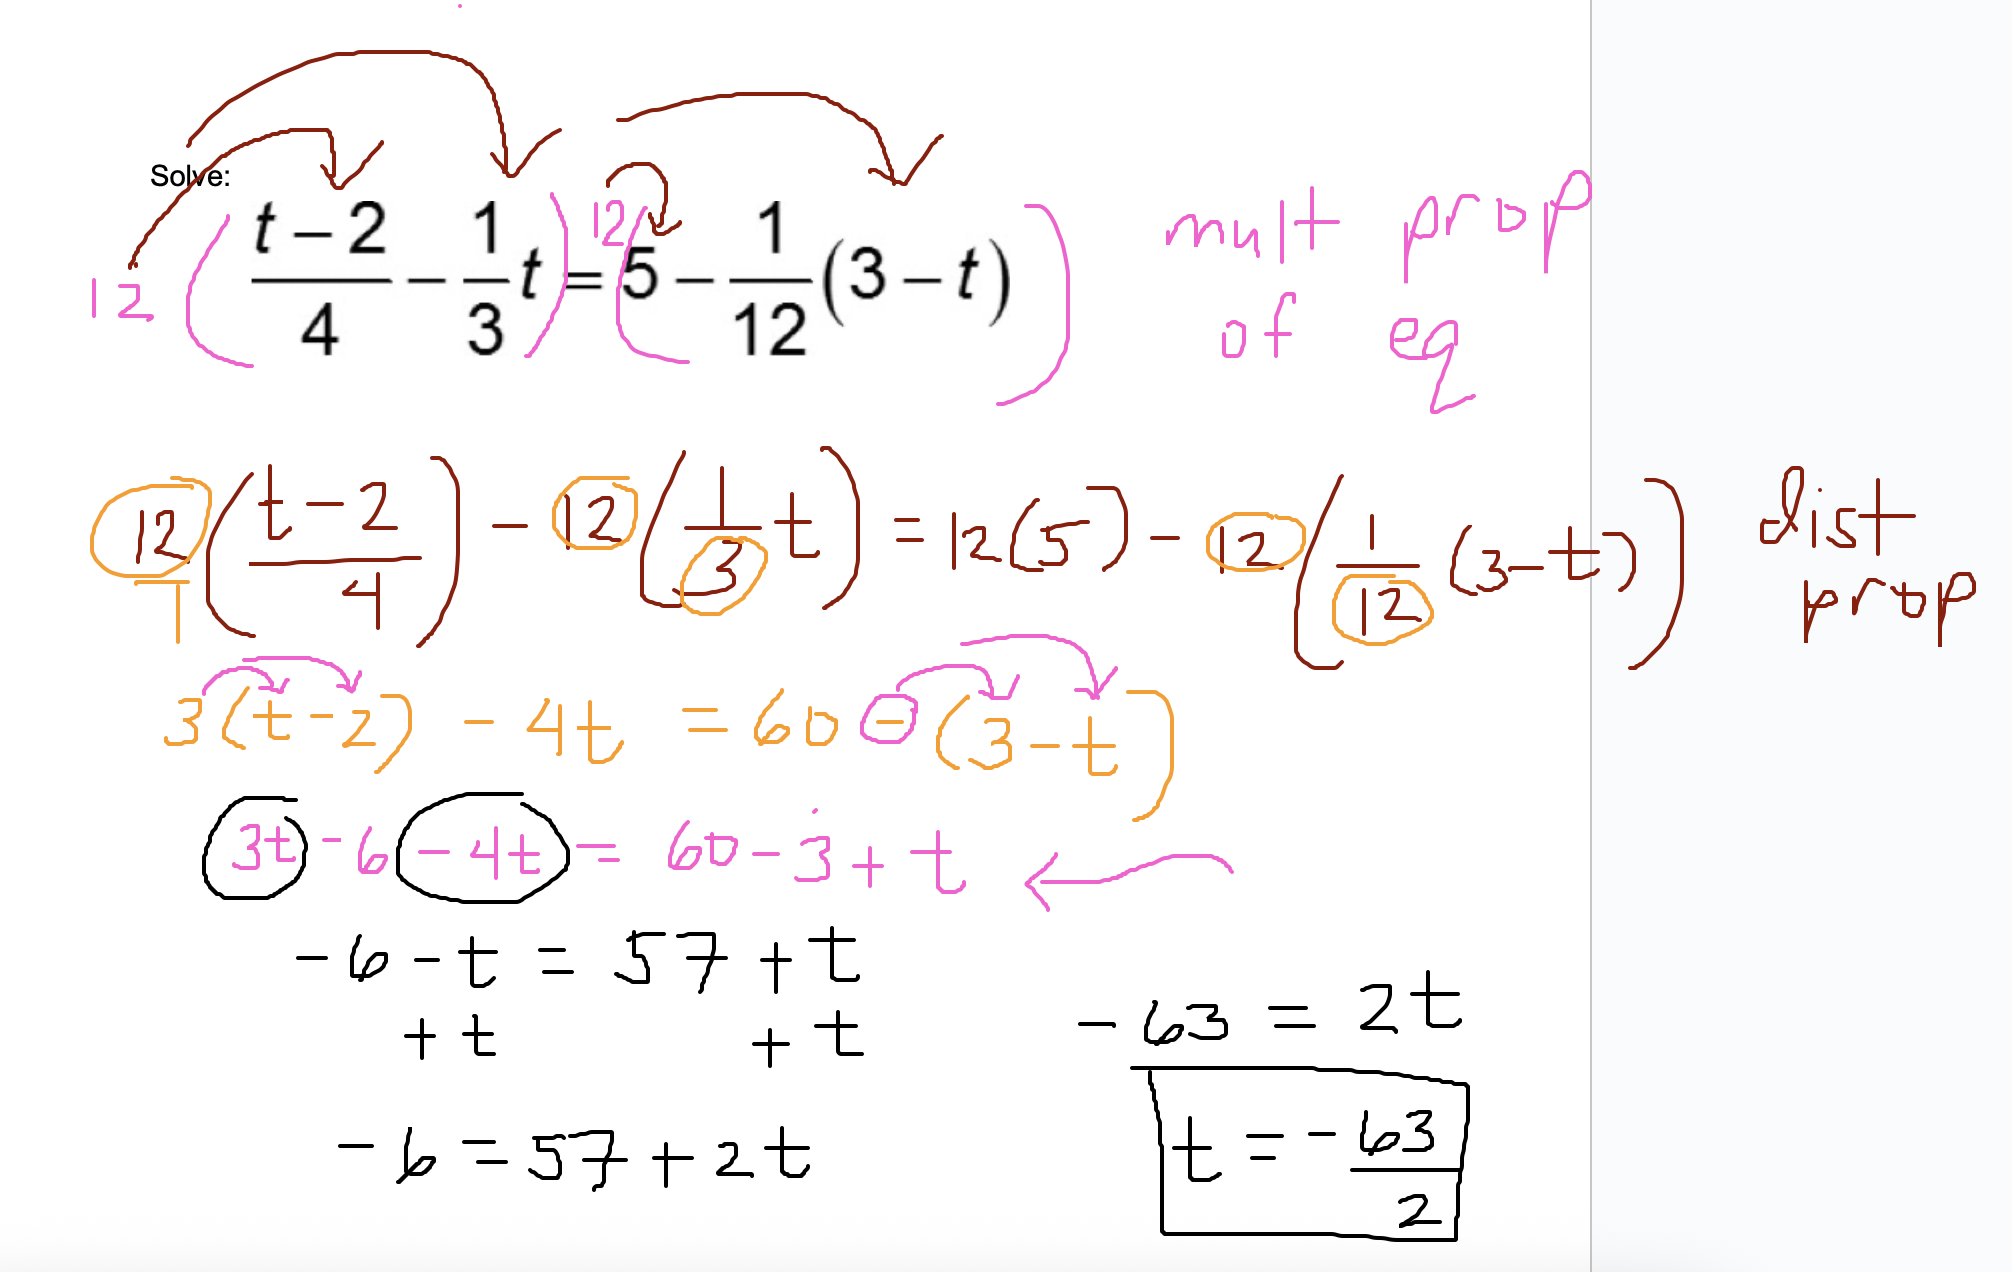 Solve:
12( (t-2)/4 - 1/3 t ) = 12( 5 - 1/12 (3-t) ) mult prop
of eq
12/1 ( (t-2)/4 ) - 12( 1/3 t ) = 12(5) - 12( 1/12 (3-t) ) dist
prop
3(t-2) - 4t = 60 - (3-t)
3t - 6 - 4t = 60 - 3 + t
-6 - t = 57 + t
+ t + t
-6 = 57 + 2t
-63 = 2t
t = -63/2